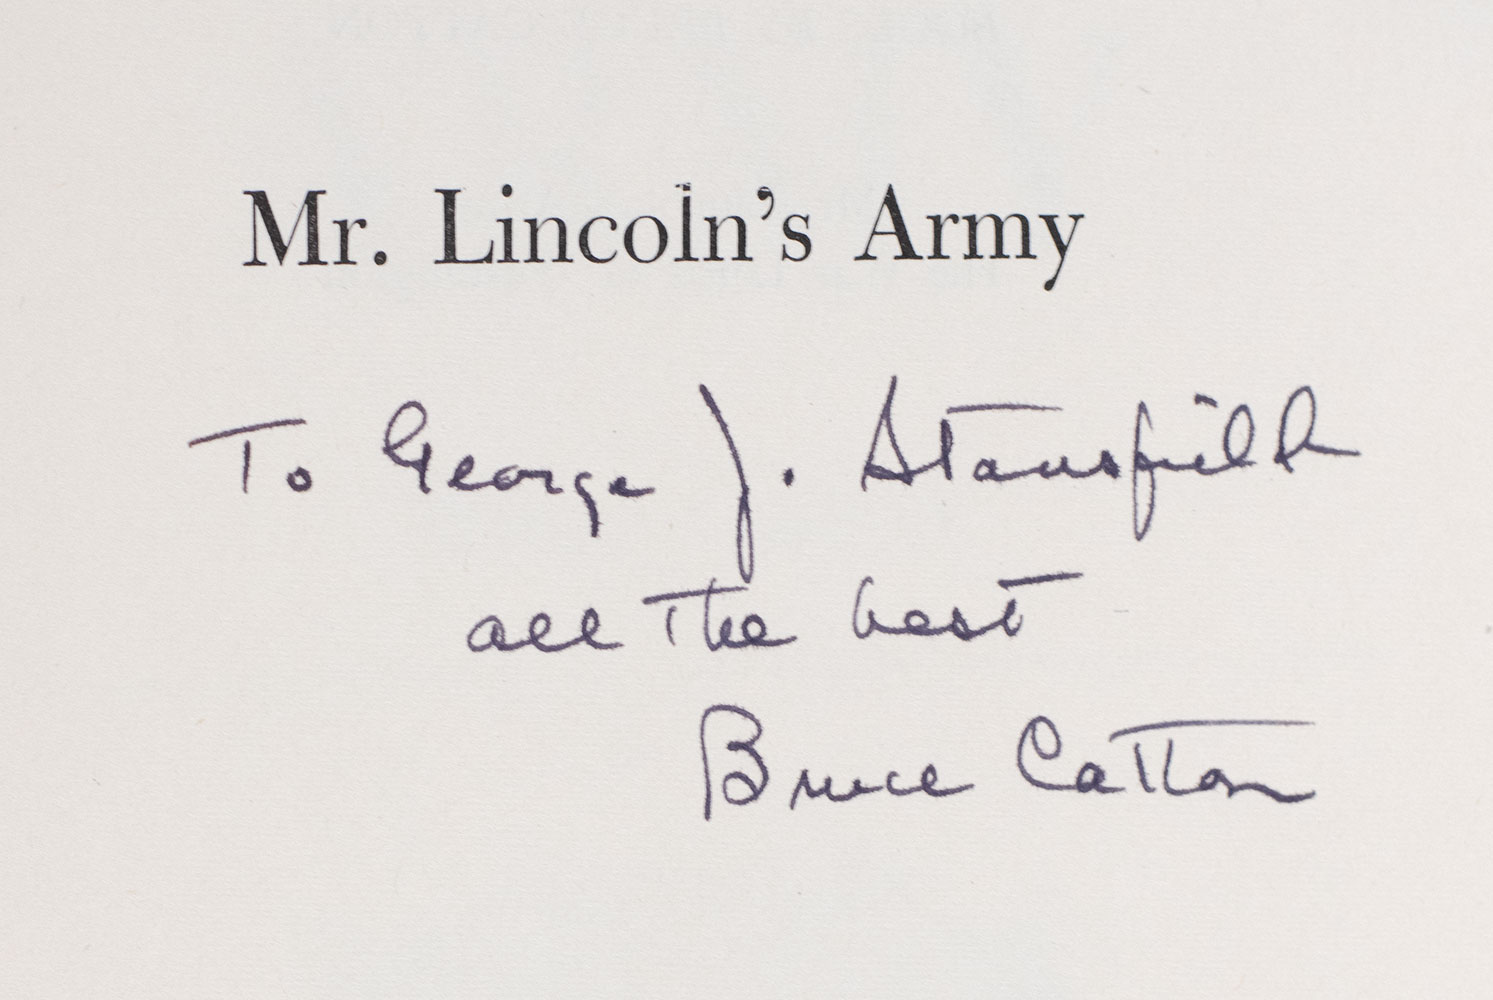 Mr. Lincoln's Army
To George J. Stansfield
all the best
Bruce Catton